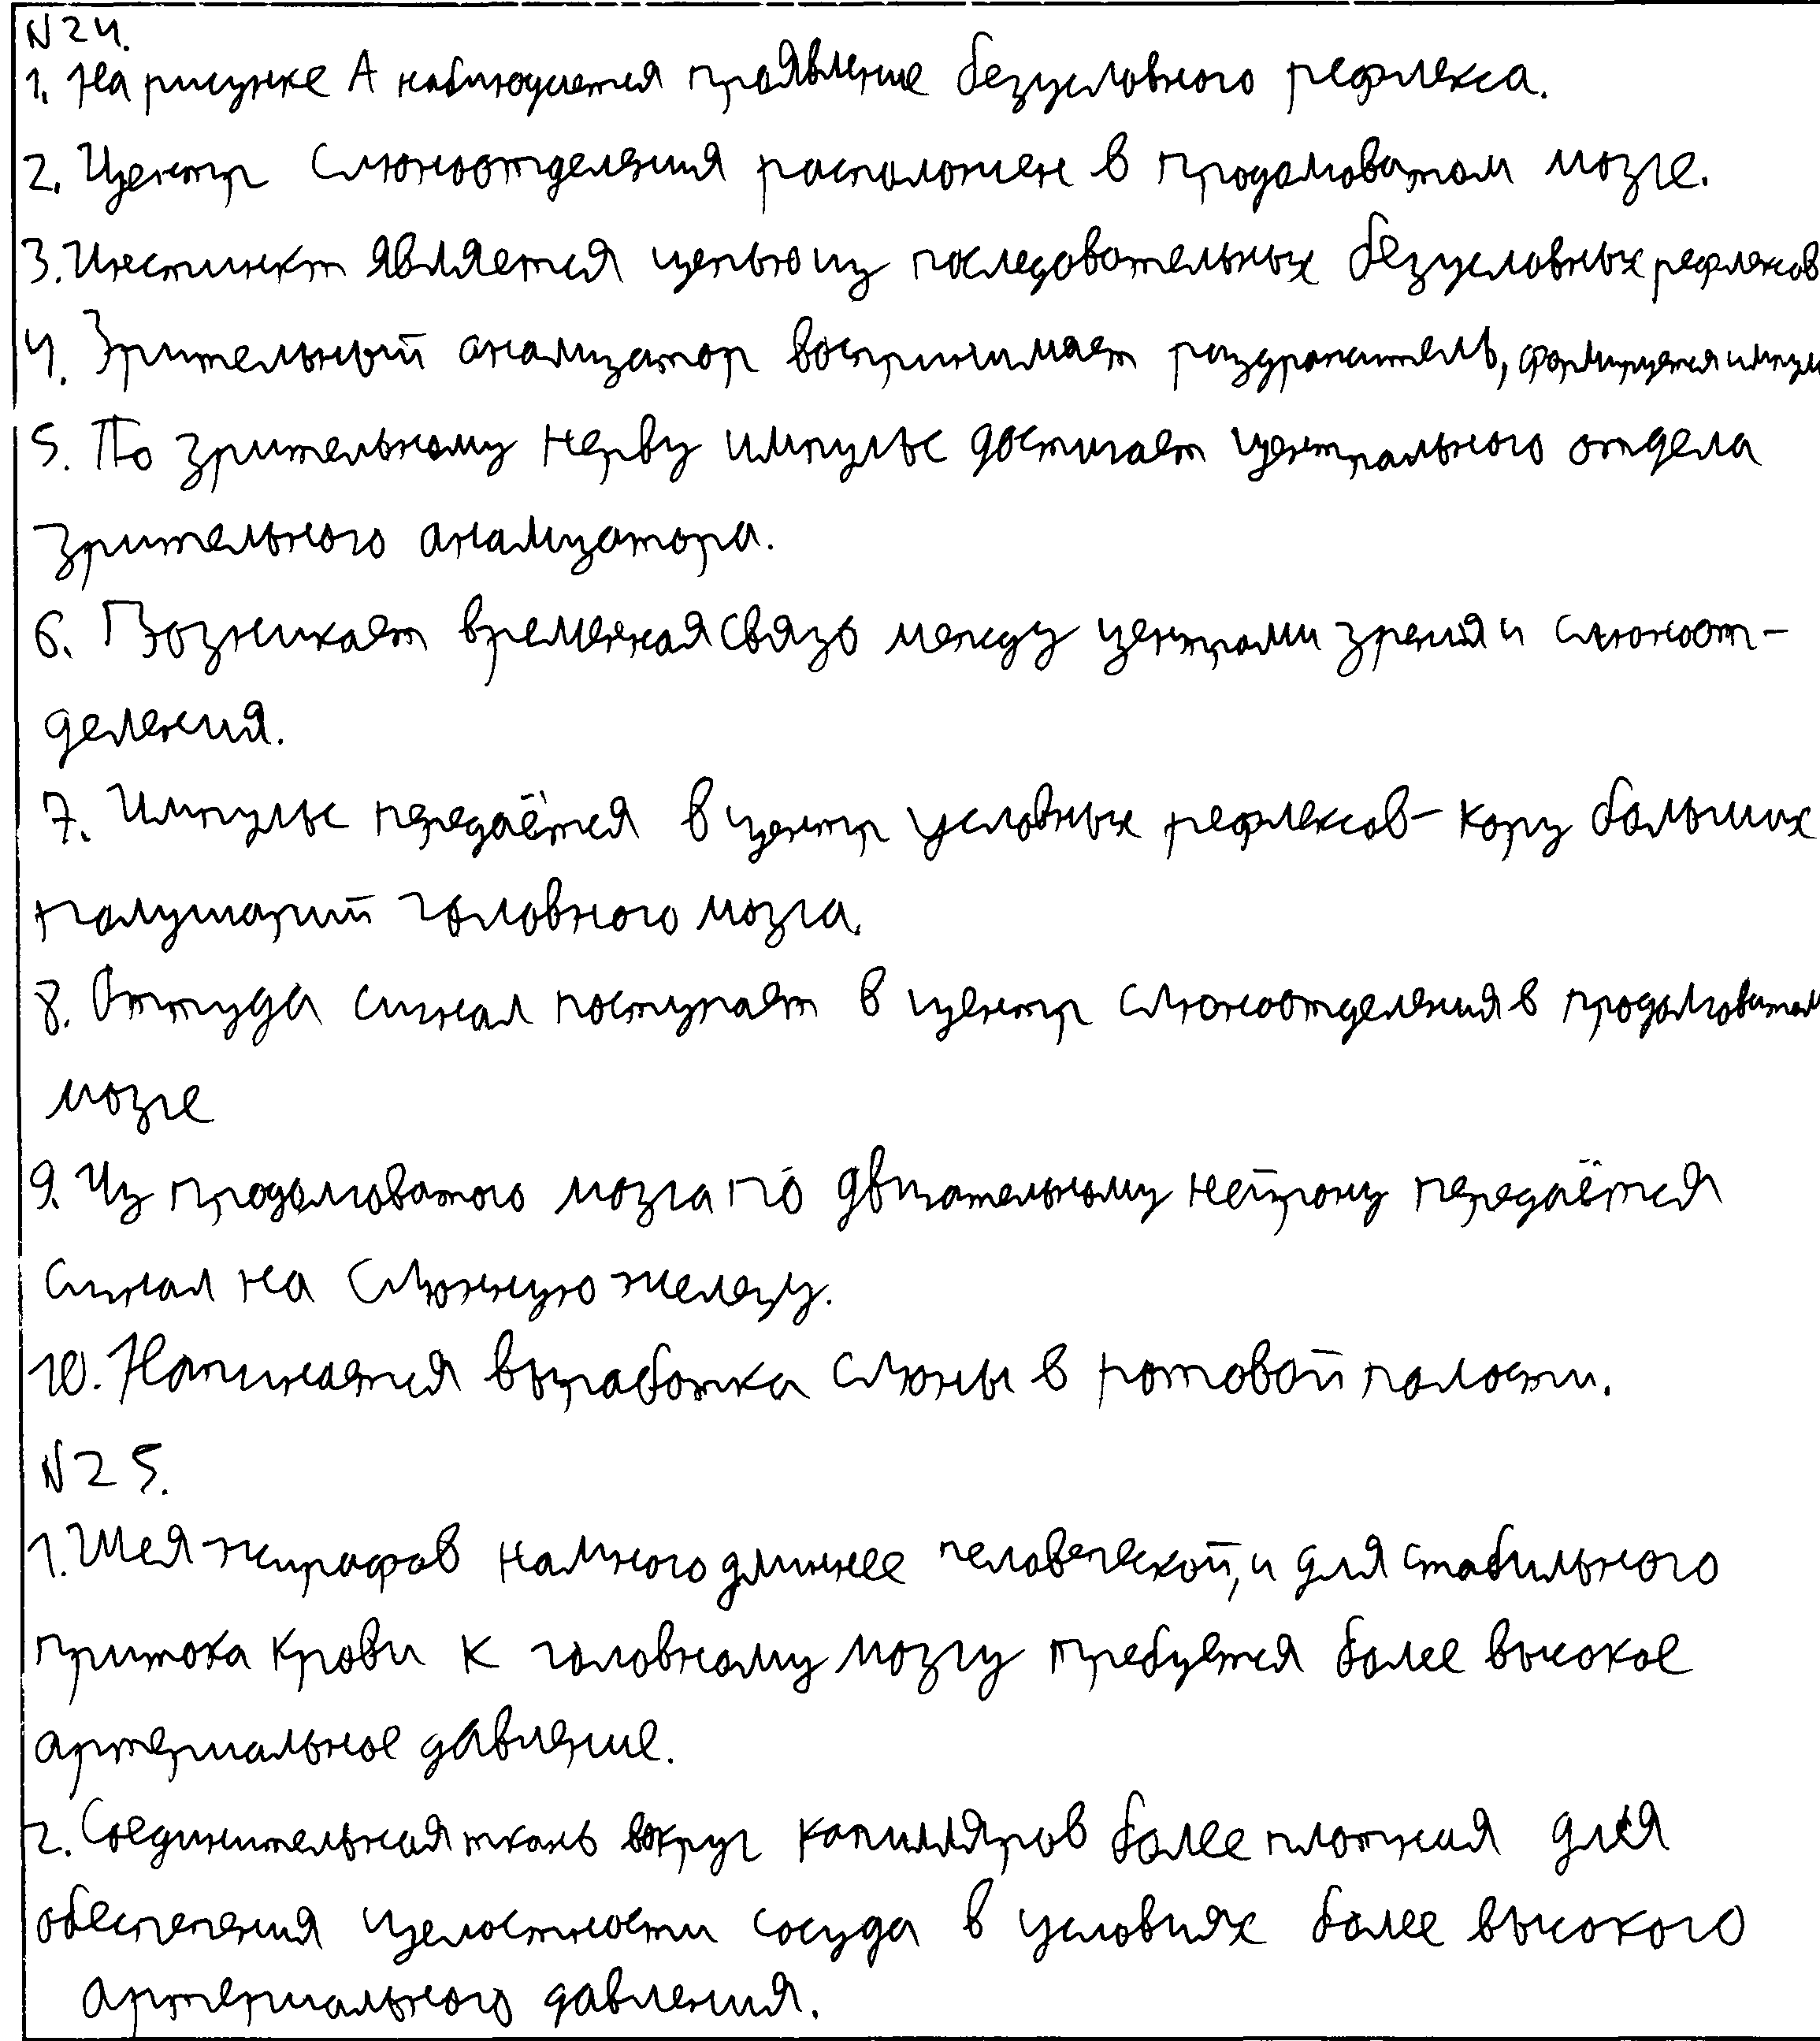 N24.
1. На рисунке А наблюдается проявление безусловного рефлекса.
2. Центр слюноотделения расположен в продолговатом мозге.
3. Инстинкт является цепью из последовательных безусловных рефлексов
4. Зрительный анализатор воспринимает раздражитель, формируется импул
5. По зрительному нерву импульс достигает центрального отдела
зрительного анализатора.
6. Возникает временная связь между центрами зрения и слюноот-
деления.
7. Импульс передаётся в центр условных рефлексов - кору больших
полушарий головного мозга.
8. Оттуда сигнал поступает в центр слюноотделения в продолговатом
мозге
9. Из продолговатого мозга по двигательному нейрону передаётся
сигнал на слюнную железу.
10. Начинается выработка слюны в ротовой полости.
N25.
1. Шея жирафов намного длиннее человеческой, и для стабильного
притока крови к головному мозгу требуется более высокое
артериальное давление.
2. Соединительная ткань вокруг капилляров более плотная для
обеспечения целостности сосуда в условиях более высокого
артериального давления.